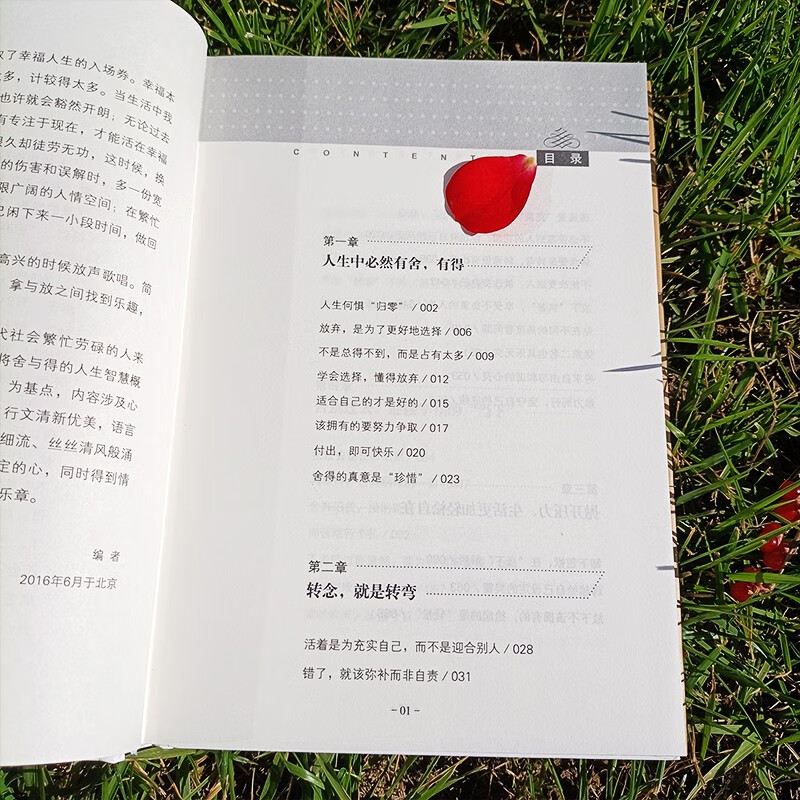 取了幸福人生的入场券。幸福本
多，计较得太多。当生活中我
也许就会豁然开朗；无论过去
有专注于现在，才能活在幸福
很久却徒劳无功，这时候，换
的伤害和误解时，多一份宽
限广阔的人情空间；在繁忙
己闲下来一小段时间，做回
高兴的时候放声歌唱。简
拿与放之间找到乐趣，
代社会繁忙劳碌的人来
将舍与得的人生智慧概
为基点，内容涉及心
行文清新优美，语言
细流、丝丝清风般涌
定的心，同时得到情
乐章。
编者
2016年6月于北京
CONTENT
目录
第一章
人生中必然有舍，有得
人生何惧“归零” / 002
放弃，是为了更好地选择 / 006
不是总得不到，而是占有太多 / 009
学会选择，懂得放弃 / 012
适合自己的才是好的 / 015
该拥有的要努力争取 / 017
付出，即可快乐 / 020
舍得的真意是“珍惜” / 023
第二章
转念，就是转弯
活着是为充实自己，而不是迎合别人 / 028
错了，就该弥补而非自责 / 031
- 01 -